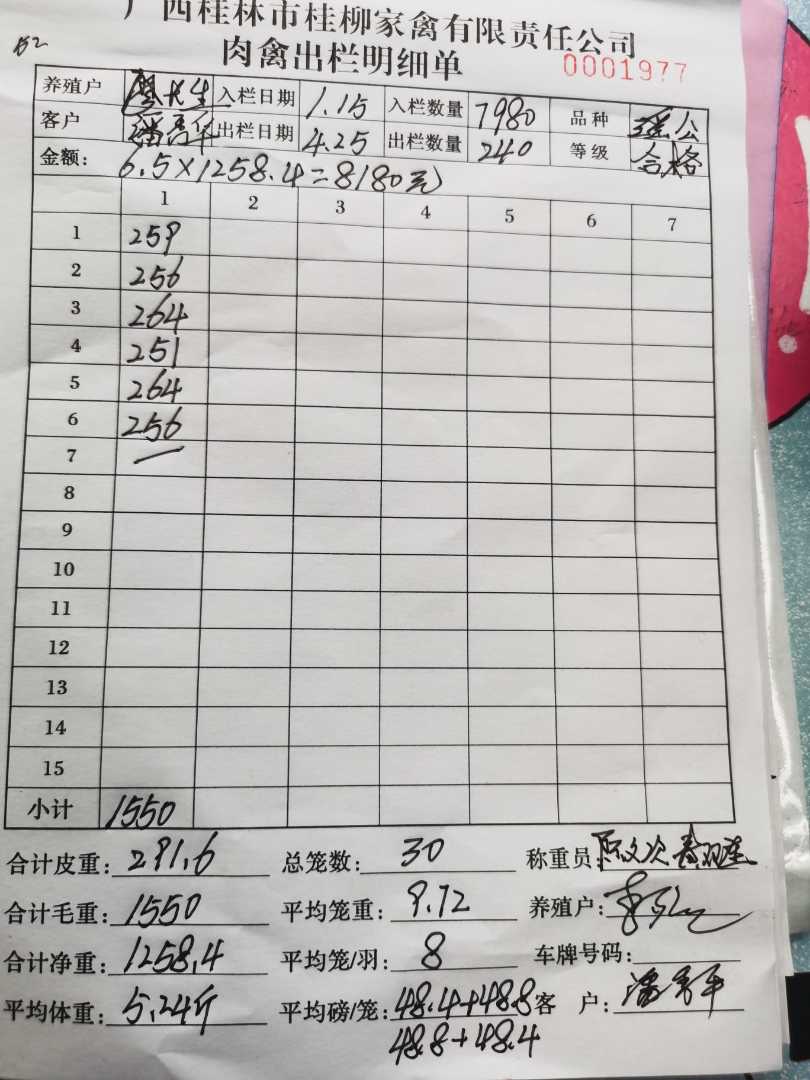 广西桂林市桂柳家禽有限责任公司
肉禽出栏明细单
0001977
养殖户 入栏日期 1.15 入栏数量 7980 品种 公
客户 出栏日期 4.25 出栏数量 240 等级 合格
金额: 6.5×1258.4=8180元
1 2 3 4 5 6 7
1 259
2 256
3 264
4 251
5 264
6 256
7 —
8
9
10
11
12
13
14
15
小计 1550
合计皮重: 291.6 总笼数: 30 称重员:
合计毛重: 1550 平均笼重: 9.72 养殖户:
合计净重: 1258.4 平均笼/羽: 8 车牌号码:
平均体重: 5.24斤 平均磅/笼: 48.4+48.8 客 户:
48.8+48.4